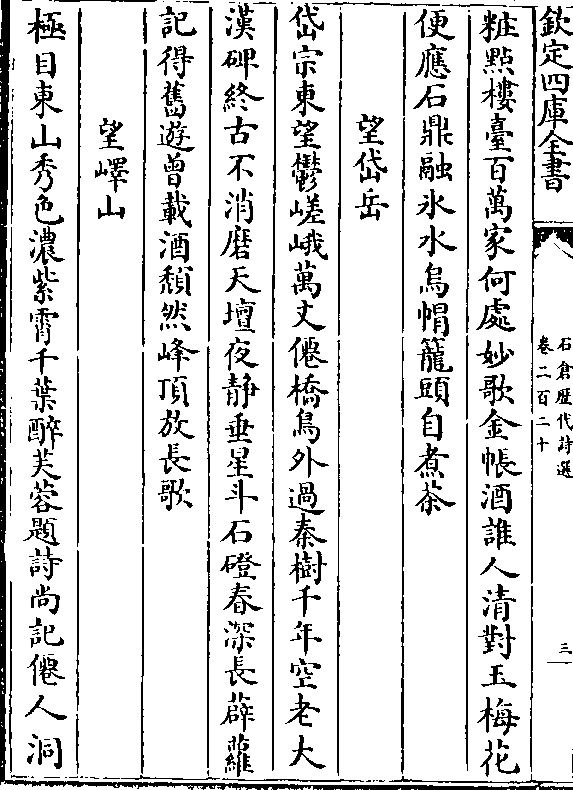 欽定四庫全書
石倉歴代詩選
卷二百二十
三
粧點樓臺百萬家何處妙歌金帳酒誰人清對玉梅花
便應石鼎融氷水烏㡌籠頭自煮茶
望岱岳
岱宗東望鬱嵯峨萬丈僊橋鳥外過秦樹千年空老大
漢碑終古不消磨天壇夜靜垂星斗石磴春深長薜蘿
記得舊遊曾載酒頹然峰頂放長歌
望嶧山
極目東山秀色濃紫霄千葉醉芙蓉題詩尚記僊人洞